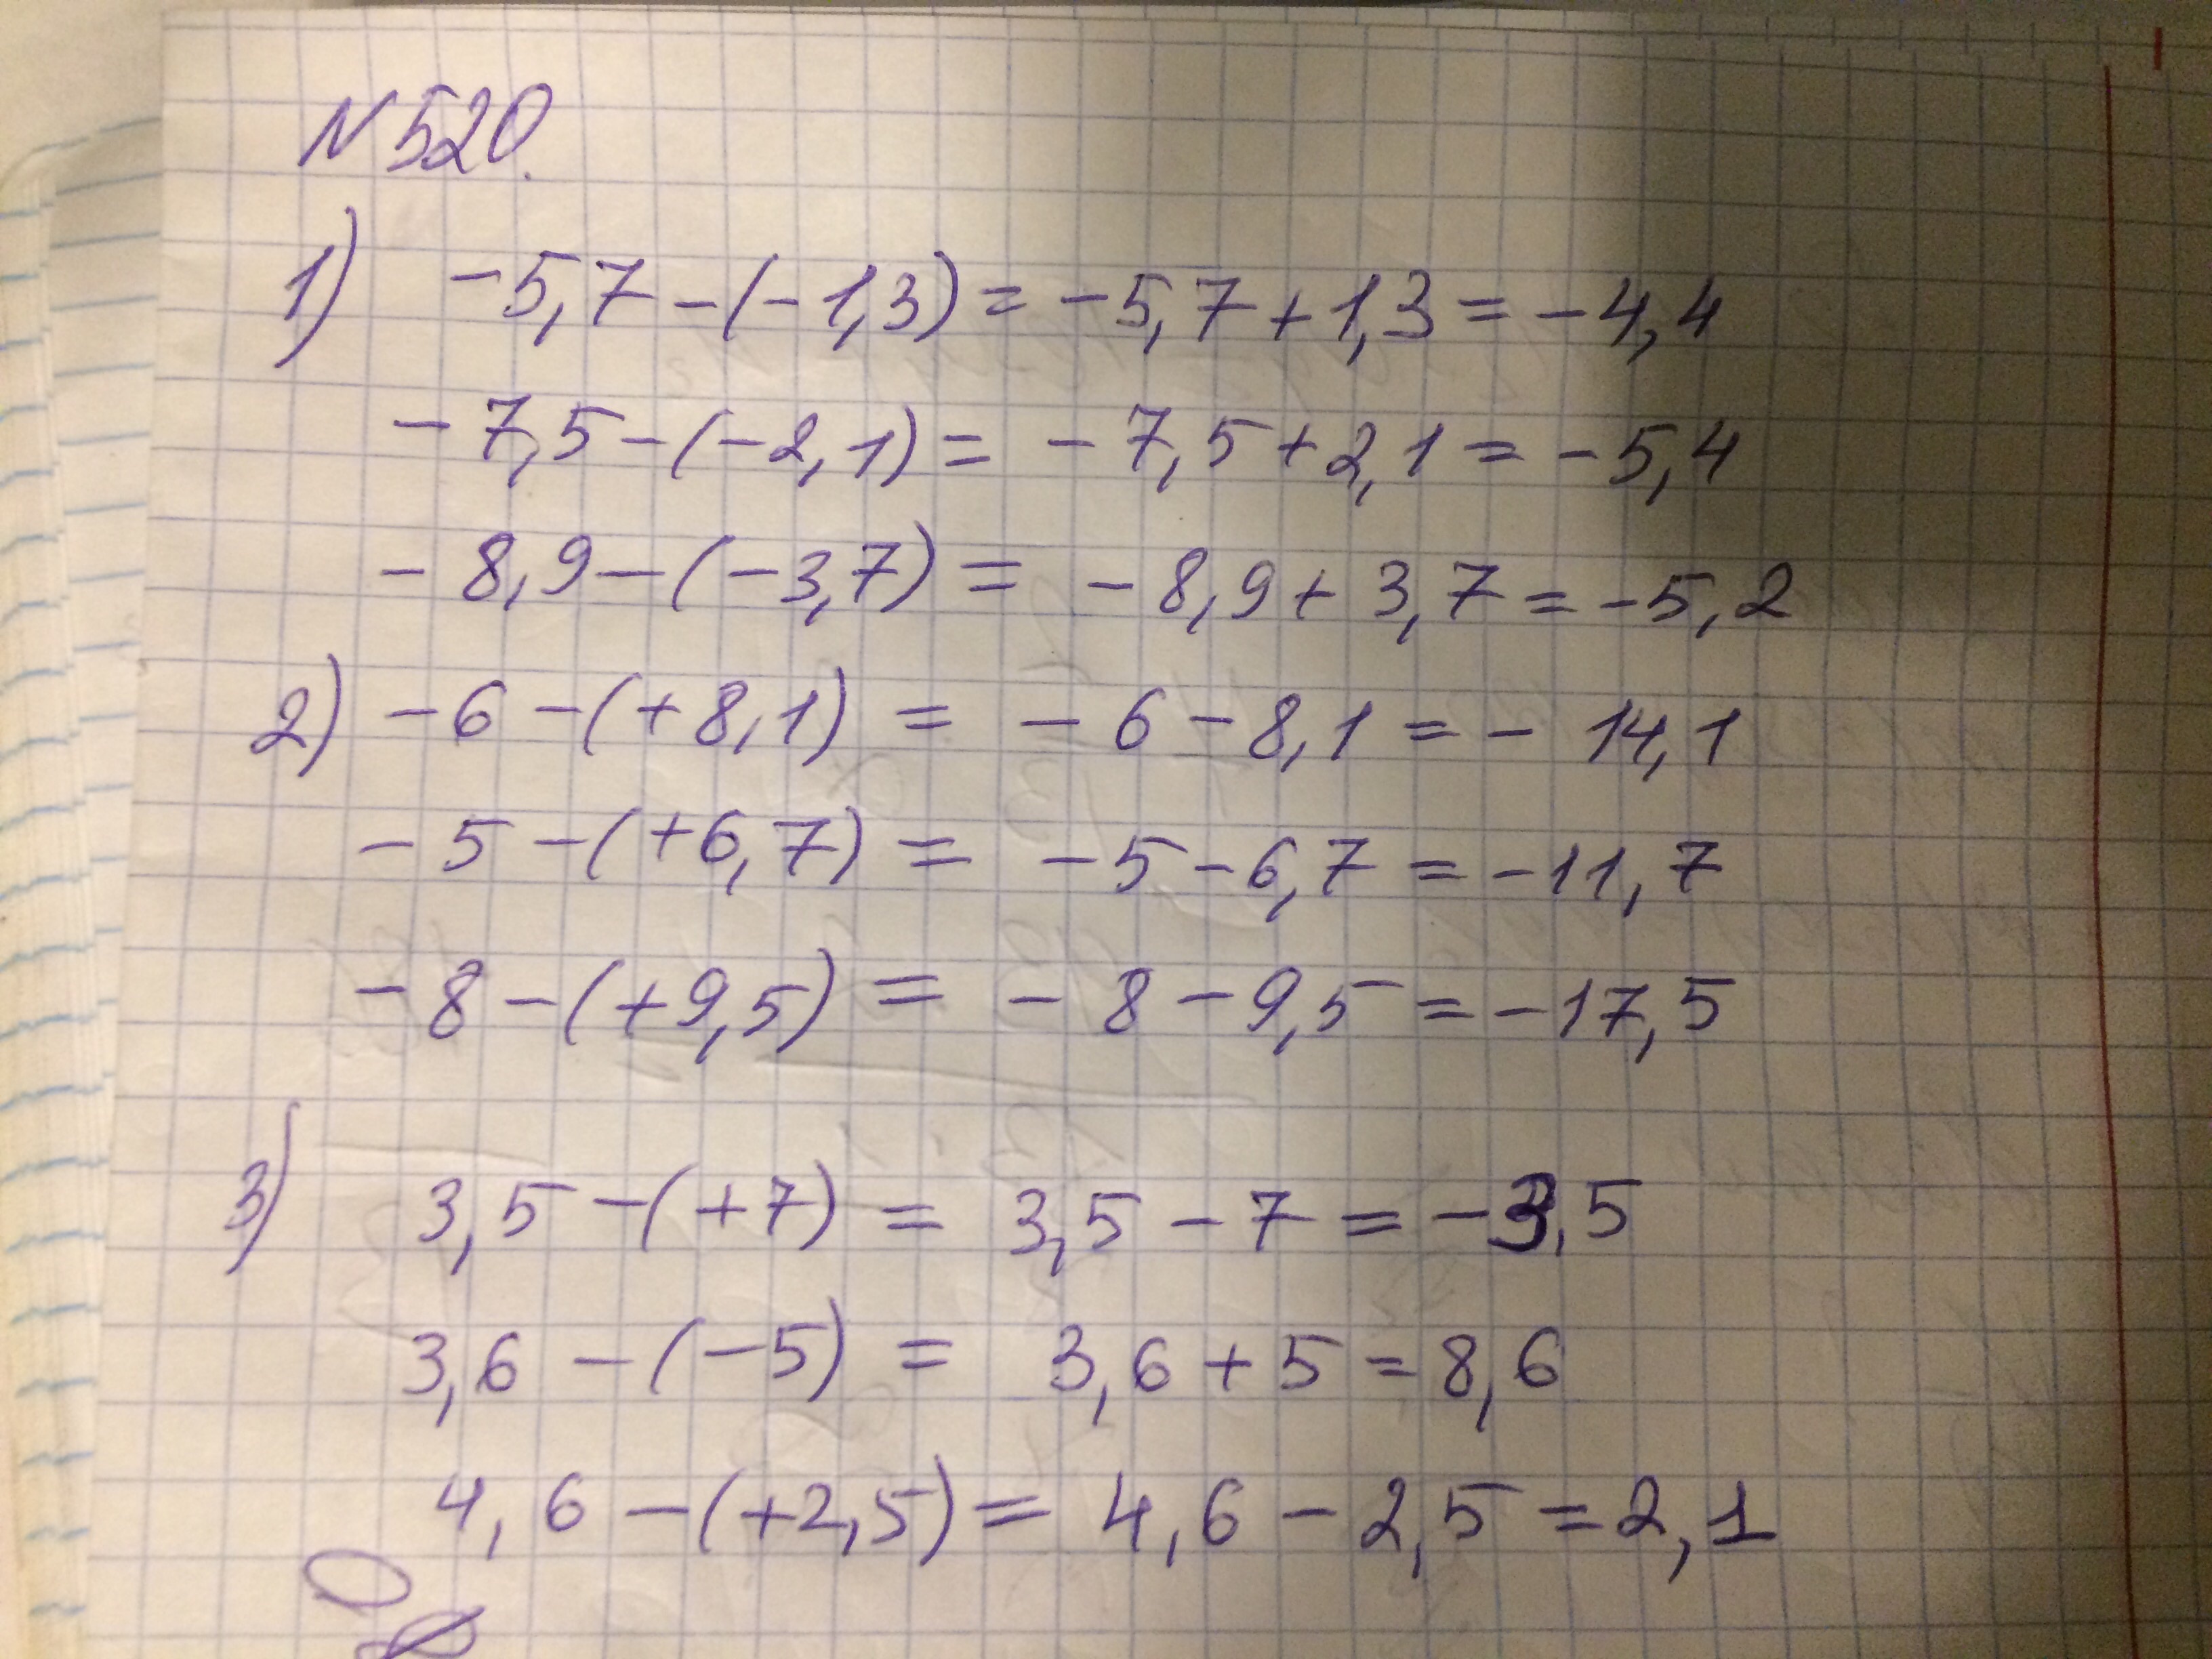 N 520.
1) -5,7-(-1,3)= -5,7+1,3=-4,4
-7,5-(-2,1)= -7,5+2,1=-5,4
-8,9-(-3,7)= -8,9+3,7=-5,2
2) -6-(+8,1)= -6-8,1=-14,1
-5-(+6,7)= -5-6,7=-11,7
-8-(+9,5)= -8-9,5=-17,5
3) 3,5-(+7)= 3,5-7=-3,5
3,6-(-5)= 3,6+5=8,6
4,6-(+2,5)= 4,6-2,5=2,1